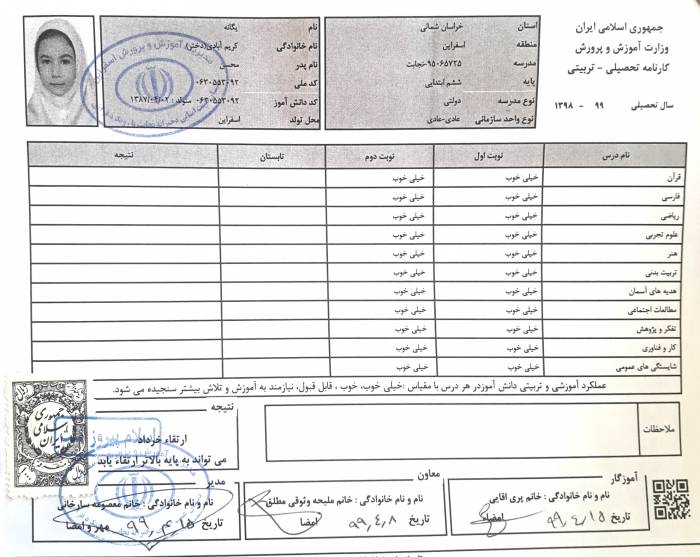 جمهوری اسلامی ایران
وزارت آموزش و پرورش
کارنامه تحصیلی - تربیتی
سال تحصیلی ۹۹ - ۱۳۹۸
استان خراسان شمالی
منطقه اسفراین
مدرسه ۹۵۰۶۵۷۲۵-نجابت
پایه ششم ابتدایی
نوع مدرسه دولتی
نوع واحد سازمانی عادی-عادی
نام یگانه
نام خانوادگی کریم آبادی(دختر)
نام پدر محسن
کد ملی ۰۶۳۰۵۵۳۰۹۲
کد دانش آموز ۰۶۳۰۵۵۳۰۹۲ متولد : ۱۳۸۷/۰۴/۰۲
محل تولد اسفراین
نام درس نوبت اول نوبت دوم تابستان نتیجه
قرآن خیلی خوب خیلی خوب
فارسی خیلی خوب خیلی خوب
ریاضی خیلی خوب خیلی خوب
علوم تجربی خیلی خوب خیلی خوب
هنر خیلی خوب خیلی خوب
تربیت بدنی خیلی خوب خیلی خوب
هدیه های آسمان خیلی خوب خیلی خوب
مطالعات اجتماعی خیلی خوب خیلی خوب
تفکر و پژوهش خیلی خوب خیلی خوب
کار و فناوری خیلی خوب خیلی خوب
شایستگی های عمومی خیلی خوب خیلی خوب
عملکرد آموزشی و تربیتی دانش آموزدر هر درس با مقیاس :خیلی خوب، خوب ، قابل قبول، نیازمند به آموزش و تلاش بیشتر سنجیده می شود.
ملاحظات
نتیجه
ارتقاء خرداد
می تواند به پایه بالاتر ارتقاء یابد
جمهوری
اسلامی
ایران
آموزگار
نام و نام خانوادگی : خانم پری اقایی
تاریخ ۹۹,۴,۱۵ امضاء
معاون
نام و نام خانوادگی : خانم ملیحه وثوقی مطلق
تاریخ ۹۹,۴,۸ امضا
مدیر
نام و نام خانوادگی: خانم معصومه سارخانی
تاریخ ۹۹,۴,۱۵ مهر و امضا